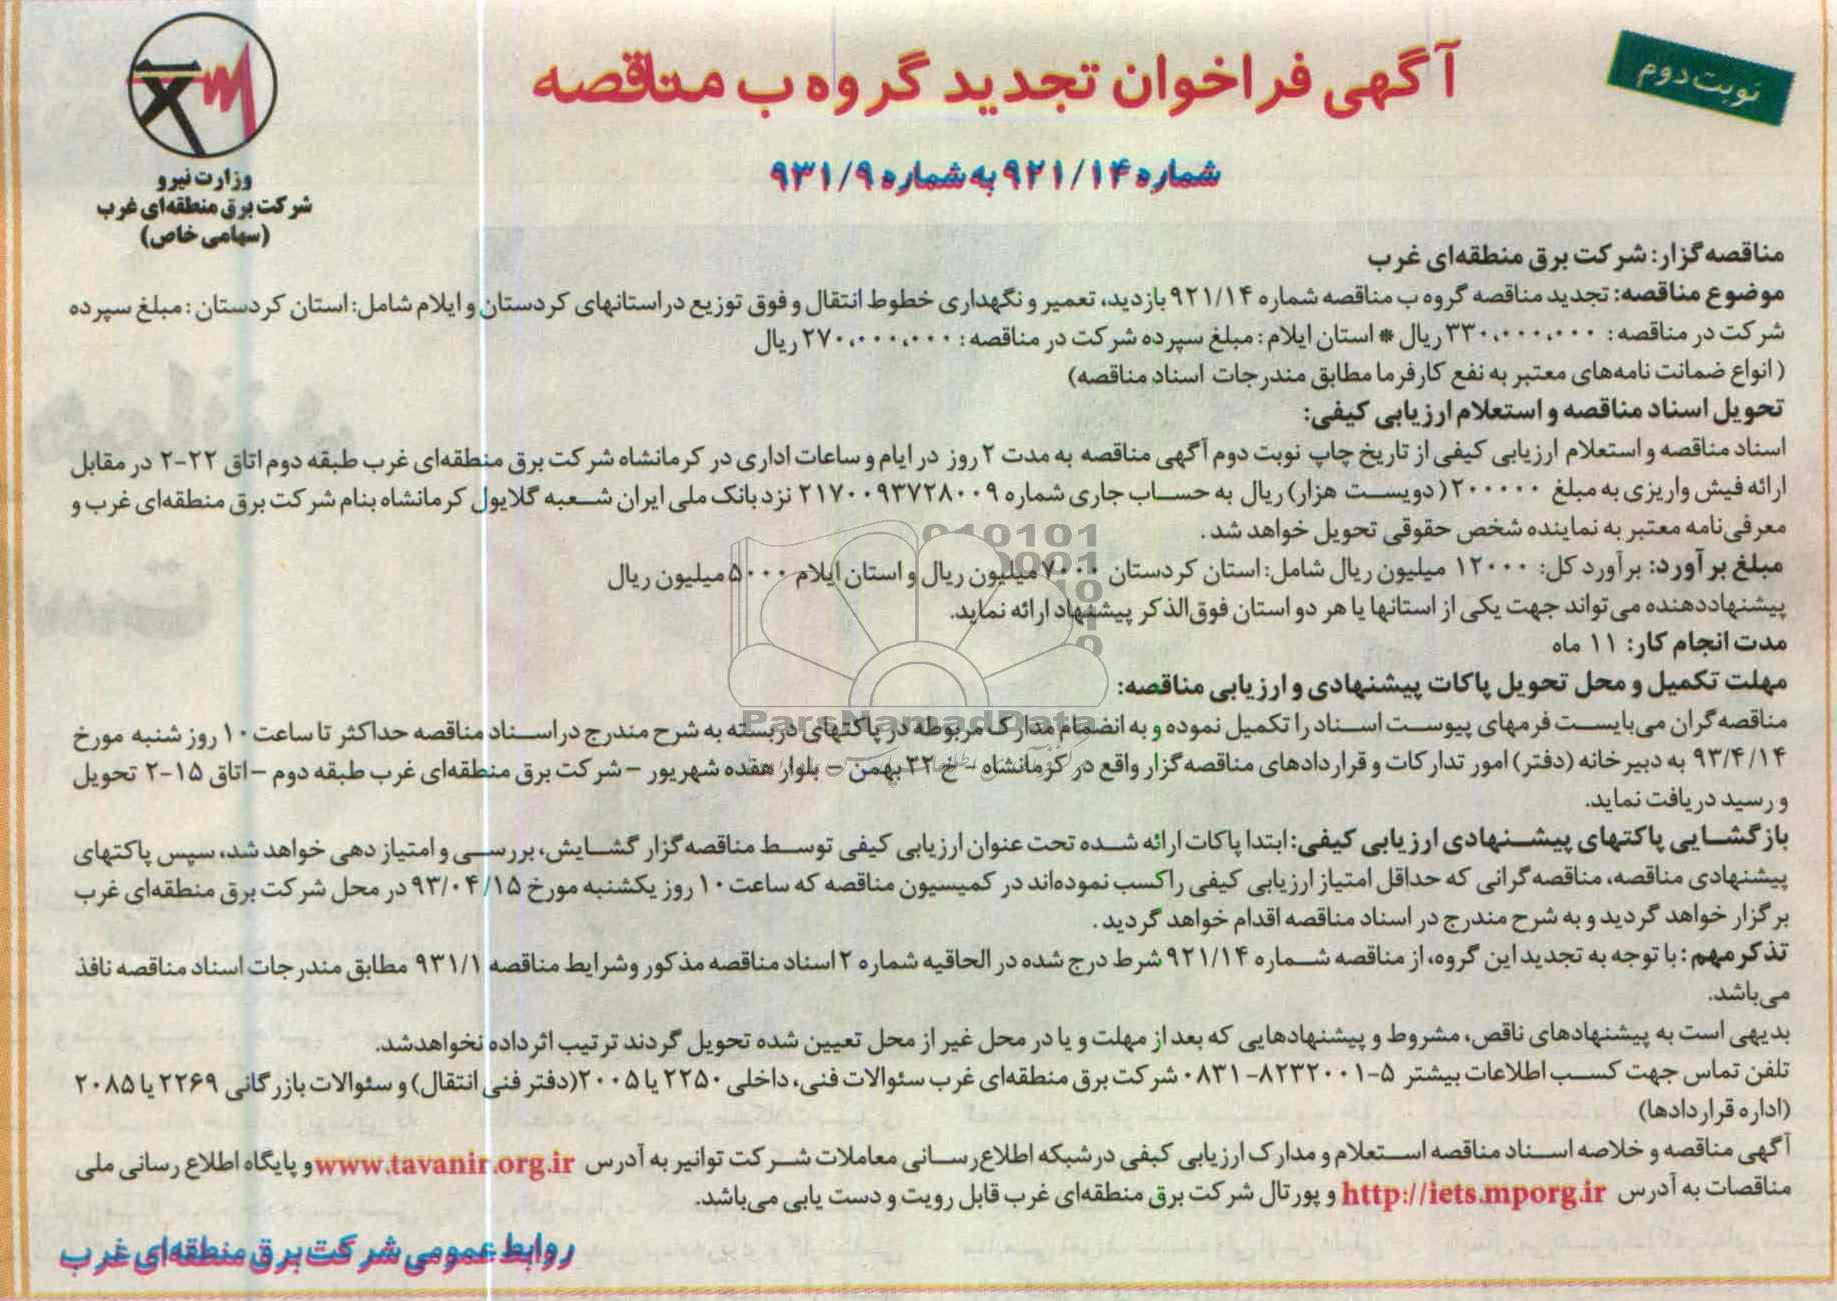 نوبت دوم
آگهی فراخوان تجدید گروه ب مناقصه
شماره ۹۲۱/۱۴ به شماره ۹۳۱/۹
وزارت نیرو
شرکت برق منطقه‌ای غرب
(سهامی خاص)
مناقصه گزار: شرکت برق منطقه‌ای غرب
موضوع مناقصه: تجدید مناقصه گروه ب مناقصه شماره ۹۲۱/۱۴ بازدید، تعمیر و نگهداری خطوط انتقال و فوق توزیع در استانهای کردستان و ایلام شامل: استان کردستان: مبلغ سپرده
شرکت در مناقصه: ۳۳۰،۰۰۰،۰۰۰ ریال * استان ایلام: مبلغ سپرده شرکت در مناقصه: ۲۷۰،۰۰۰،۰۰۰ ریال
(انواع ضمانت نامه‌های معتبر به نفع کارفرما مطابق مندرجات اسناد مناقصه)
تحویل اسناد مناقصه و استعلام ارزیابی کیفی:
اسناد مناقصه و استعلام ارزیابی کیفی از تاریخ چاپ نوبت دوم آگهی مناقصه به مدت ۲ روز در ایام و ساعات اداری در کرمانشاه شرکت برق منطقه‌ای غرب طبقه دوم اتاق ۲۲-۲ در مقابل
ارائه فیش واریزی به مبلغ ۲۰۰۰۰۰ (دویست هزار) ریال به حساب جاری شماره ۲۱۷۰۰۹۳۷۲۸۰۰۹ نزد بانک ملی ایران شعبه گلایول کرمانشاه بنام شرکت برق منطقه‌ای غرب و
معرفی‌نامه معتبر به نماینده شخص حقوقی تحویل خواهد شد.
مبلغ برآورد: برآورد کل: ۱۲۰۰۰ میلیون ریال شامل: استان کردستان ۷۰۰۰ میلیون ریال و استان ایلام ۵۰۰۰ میلیون ریال
پیشنهاددهنده می‌تواند جهت یکی از استانها یا هر دو استان فوق‌الذکر پیشنهاد ارائه نماید.
مدت انجام کار: ۱۱ ماه
مهلت تکمیل و محل تحویل پاکات پیشنهادی و ارزیابی مناقصه:
مناقصه گران می‌بایست فرمهای پیوست اسناد را تکمیل نموده و به انضمام مدارک مربوطه در پاکتهای دربسته به شرح مندرج در اسناد مناقصه حداکثر تا ساعت ۱۰ روز شنبه مورخ
۹۳/۴/۱۴ به دبیرخانه (دفتر) امور تدارکات و قراردادهای مناقصه گزار واقع در کرمانشاه - خ ۲۲ بهمن - بلوار هفده شهریور - شرکت برق منطقه‌ای غرب طبقه دوم - اتاق ۱۵-۲ تحویل
و رسید دریافت نماید.
بازگشایی پاکتهای پیشنهادی ارزیابی کیفی: ابتدا پاکات ارائه شده تحت عنوان ارزیابی کیفی توسط مناقصه گزار گشایش، بررسی و امتیاز دهی خواهد شد، سپس پاکتهای
پیشنهادی مناقصه، مناقصه گرانی که حداقل امتیاز ارزیابی کیفی را کسب نموده‌اند در کمیسیون مناقصه که ساعت ۱۰ روز یکشنبه مورخ ۹۳/۰۴/۱۵ در محل شرکت برق منطقه‌ای غرب
برگزار خواهد گردید و به شرح مندرج در اسناد مناقصه اقدام خواهد گردید.
تذکر مهم: با توجه به تجدید این گروه، از مناقصه شماره ۹۲۱/۱۴ شرط درج شده در الحاقیه شماره ۲ اسناد مناقصه مذکور وشرایط مناقصه ۹۳۱/۱ مطابق مندرجات اسناد مناقصه نافذ
می‌باشد.
بدیهی است به پیشنهادهای ناقص، مشروط و پیشنهادهایی که بعد از مهلت و یا در محل غیر از محل تعیین شده تحویل گردند ترتیب اثر داده نخواهدشد.
تلفن تماس جهت کسب اطلاعات بیشتر ۵-۸۲۳۲۰۰۱-۰۸۳۱ شرکت برق منطقه‌ای غرب سئوالات فنی، داخلی ۲۲۵۰ یا ۲۰۰۵ (دفتر فنی انتقال) و سئوالات بازرگانی ۲۲۶۹ یا ۲۰۸۵
(اداره قراردادها)
آگهی مناقصه و خلاصه اسناد مناقصه استعلام و مدارک ارزیابی کیفی در شبکه اطلاع‌رسانی معاملات شرکت توانیر به آدرس www.tavanir.org.ir و پایگاه اطلاع رسانی ملی
مناقصات به آدرس http://iets.mporg.ir و پورتال شرکت برق منطقه‌ای غرب قابل رویت و دست یابی می‌باشد.
روابط عمومی شرکت برق منطقه‌ای غرب
ParsNamadData